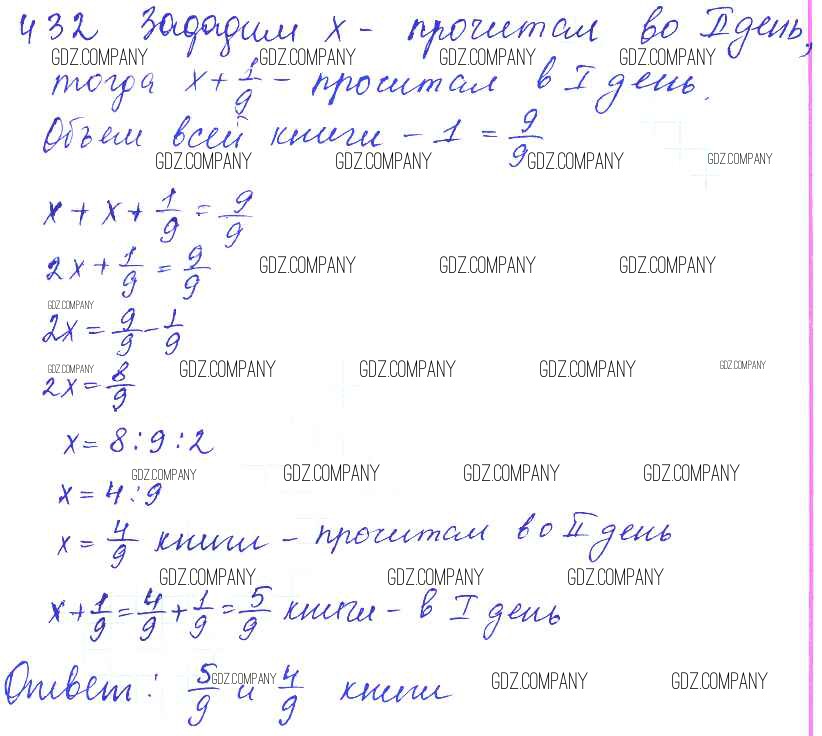 432 Зададим x - прочитал во II день,
GDZ.COMPANY GDZ.COMPANY GDZ.COMPANY GDZ.COMPANY
тогда x + 1/9 - прочитал в I день.
Объем всей книги - 1 = 9/9
GDZ.COMPANY GDZ.COMPANY GDZ.COMPANY GDZ.COMPANY
x + x + 1/9 = 9/9
2x + 1/9 = 9/9
GDZ.COMPANY GDZ.COMPANY GDZ.COMPANY
GDZ.COMPANY
2x = 9/9 - 1/9
GDZ.COMPANY GDZ.COMPANY GDZ.COMPANY GDZ.COMPANY GDZ.COMPANY
2x = 8/9
x = 8 : 9 : 2
GDZ.COMPANY GDZ.COMPANY GDZ.COMPANY GDZ.COMPANY
x = 4 : 9
x = 4/9 книги - прочитал во II день
GDZ.COMPANY GDZ.COMPANY GDZ.COMPANY
x + 1/9 = 4/9 + 1/9 = 5/9 книги - в I день
Ответ: 5/9 и 4/9 книги
GDZ.COMPANY GDZ.COMPANY GDZ.COMPANY